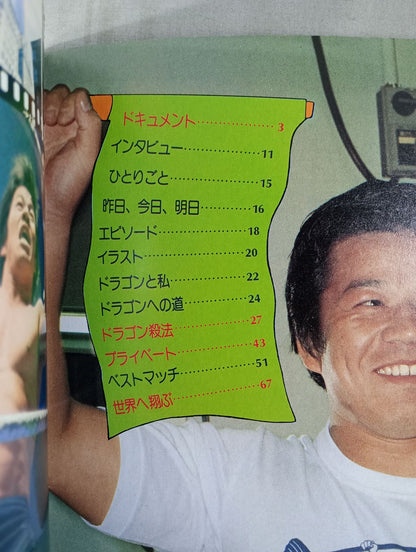 ドキュメント…………3
インタビュー…………11
ひとりごと…………15
昨日、今日、明日…………16
エピソード…………18
イラスト…………20
ドラゴンと私…………22
ドラゴンへの道…………24
ドラゴン殺法…………27
プライベート…………43
ベストマッチ…………51
世界へ翔ぶ…………67